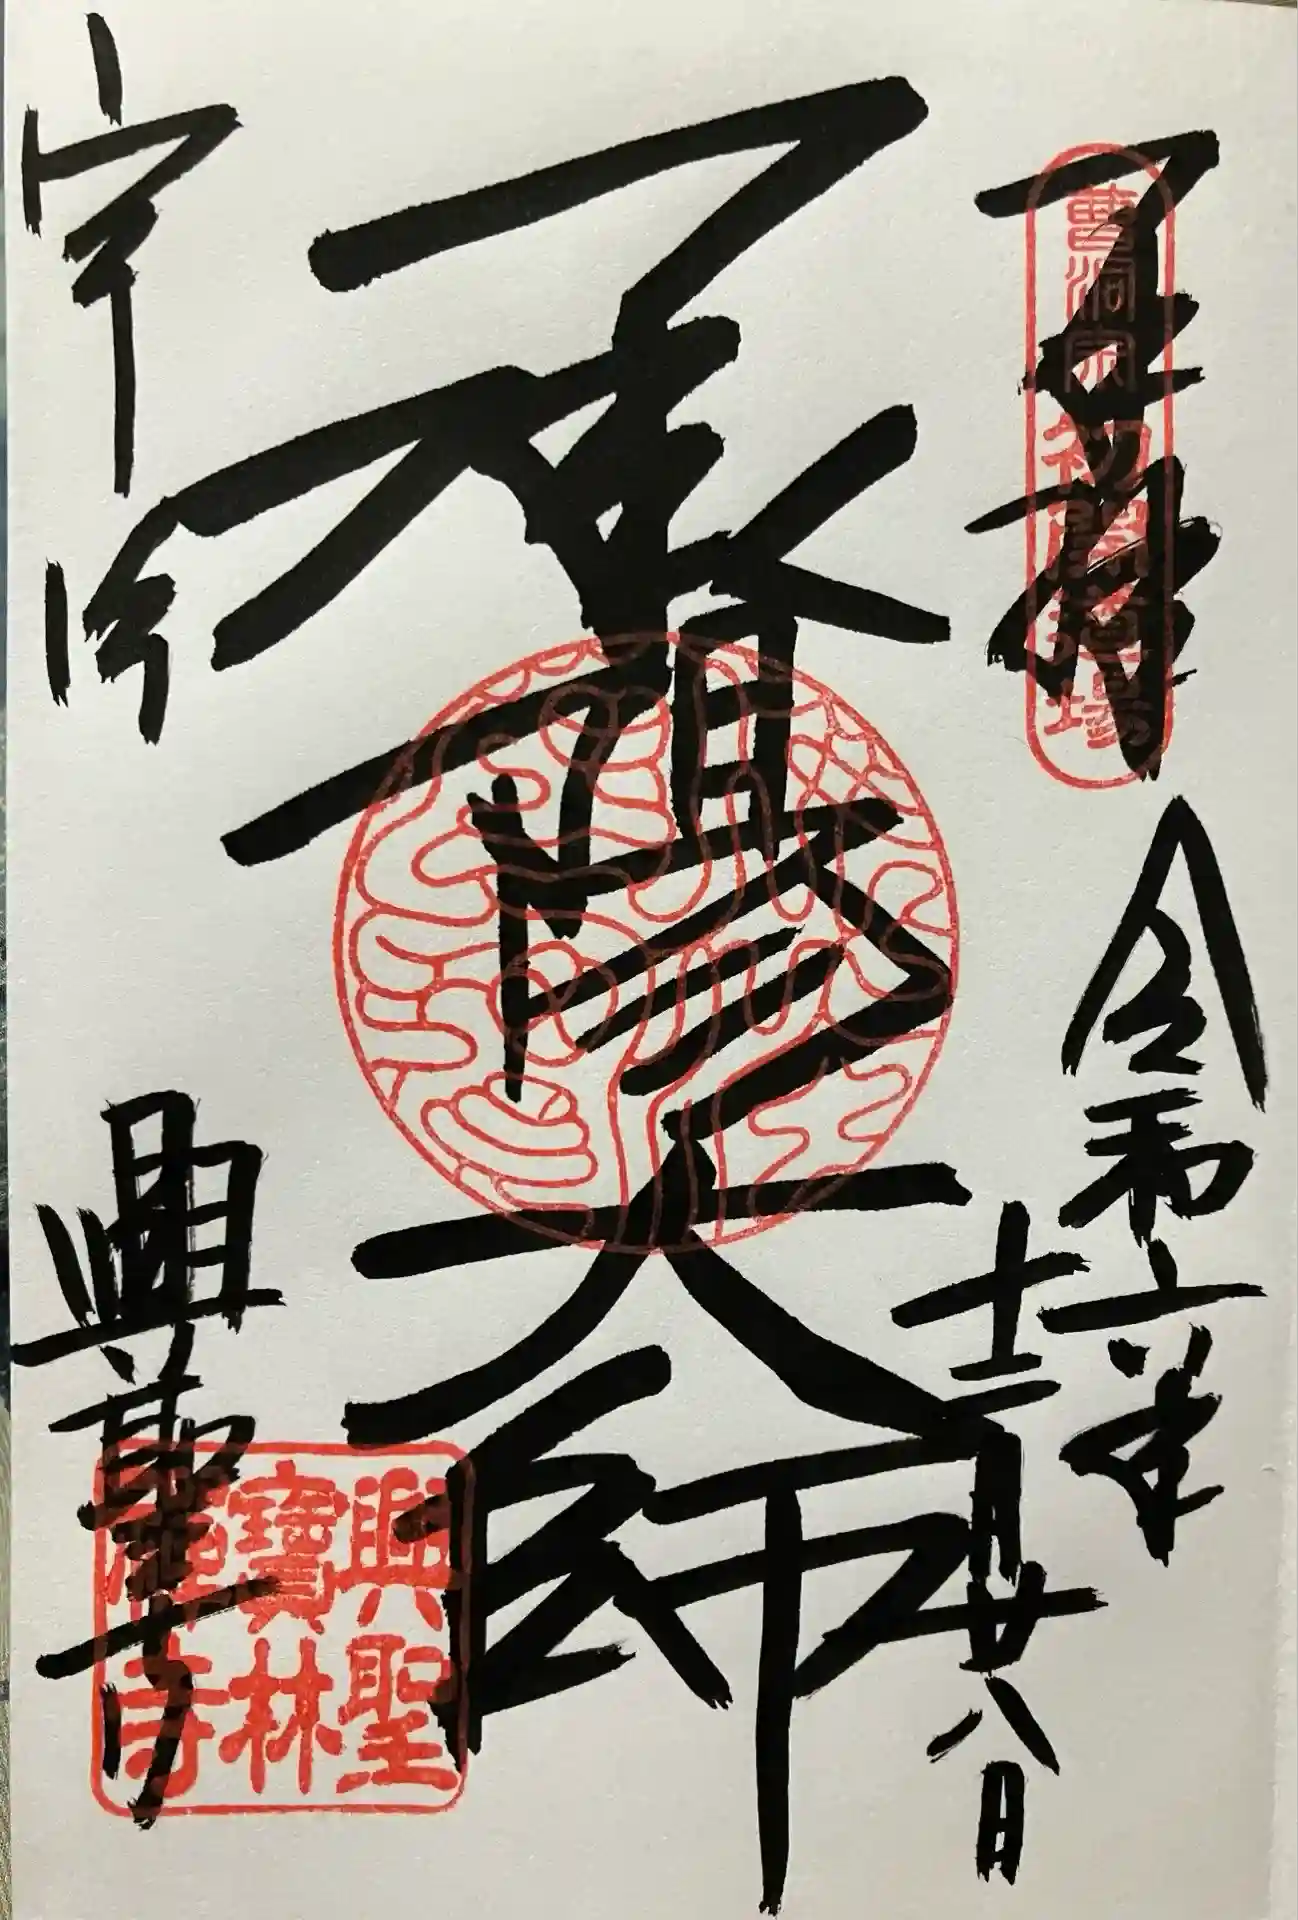 奉拝
曹洞宗初開道場
令和六年
十二月廿八日
承陽大師
宇治
興聖寺
興聖
寶林
禅寺